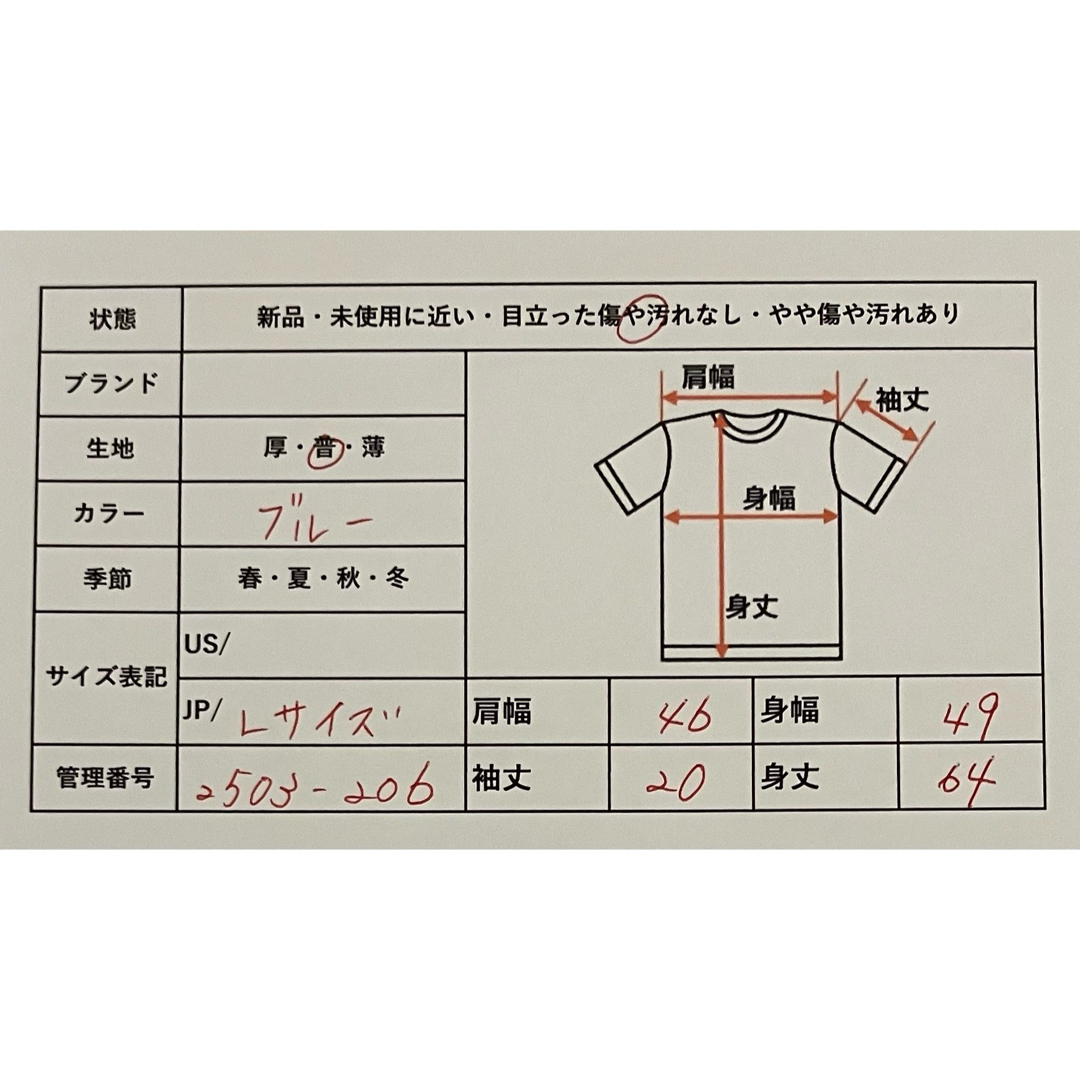 状態 新品・未使用に近い・目立った傷や汚れなし・やや傷や汚れあり
ブランド
生地 厚・普・薄
カラー ブルー
季節 春・夏・秋・冬
サイズ表記 US/
JP/ Lサイズ
管理番号 2503-206
肩幅
袖丈
身幅
身丈
肩幅 46 身幅 49
袖丈 20 身丈 64